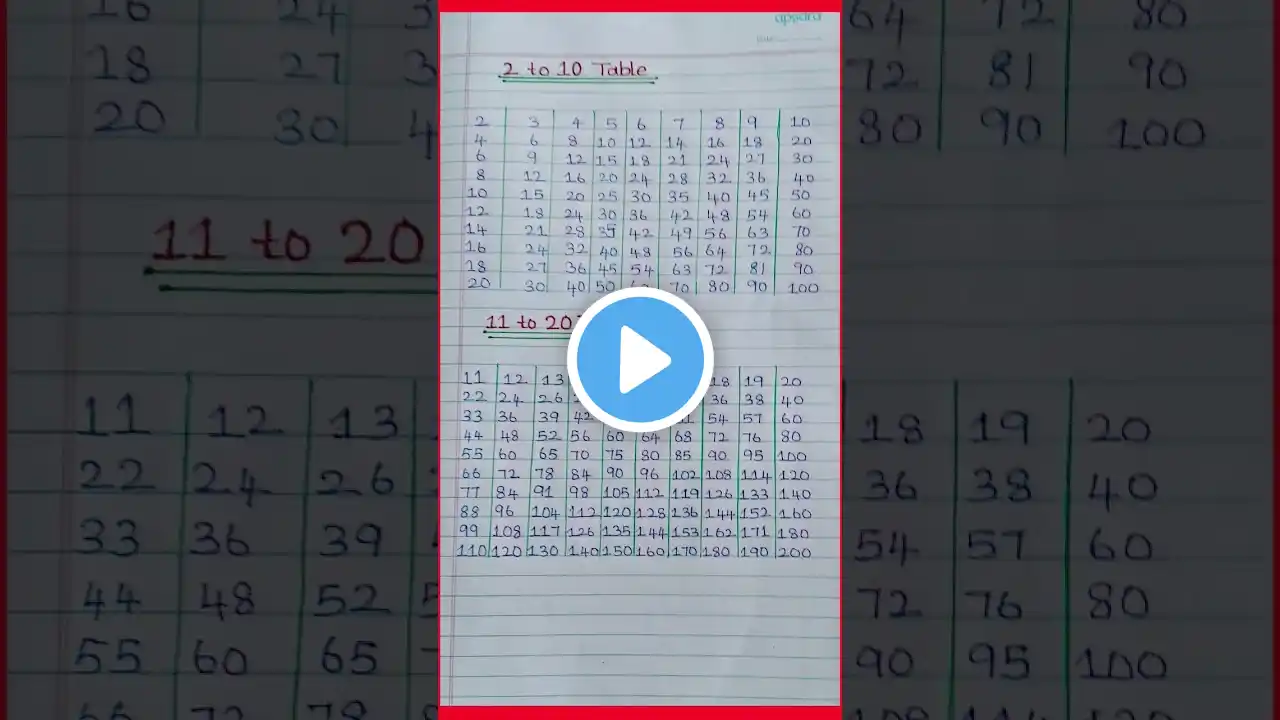 apsara
2 to 10 Table
2 3 4 5 6 7 8 9 10
4 6 8 10 12 14 16 18 20
6 9 12 15 18 21 24 27 30
8 12 16 20 24 28 32 36 40
10 15 20 25 30 35 40 45 50
12 18 24 30 36 42 48 54 60
14 21 28 35 42 49 56 63 70
16 24 32 40 48 56 64 72 80
18 27 36 45 54 63 72 81 90
20 30 40 50 70 80 90 100
11 to 20
11 12 13 18 19 20
22 24 26 36 38 40
33 36 39 42 54 57 60
44 48 52 56 60 64 68 72 76 80
55 60 65 70 75 80 85 90 95 100
66 72 78 84 90 96 102 108 114 120
77 84 91 98 105 112 119 126 133 140
88 96 104 112 120 128 136 144 152 160
99 108 117 126 135 144 153 162 171 180
110 120 130 140 150 160 170 180 190 200